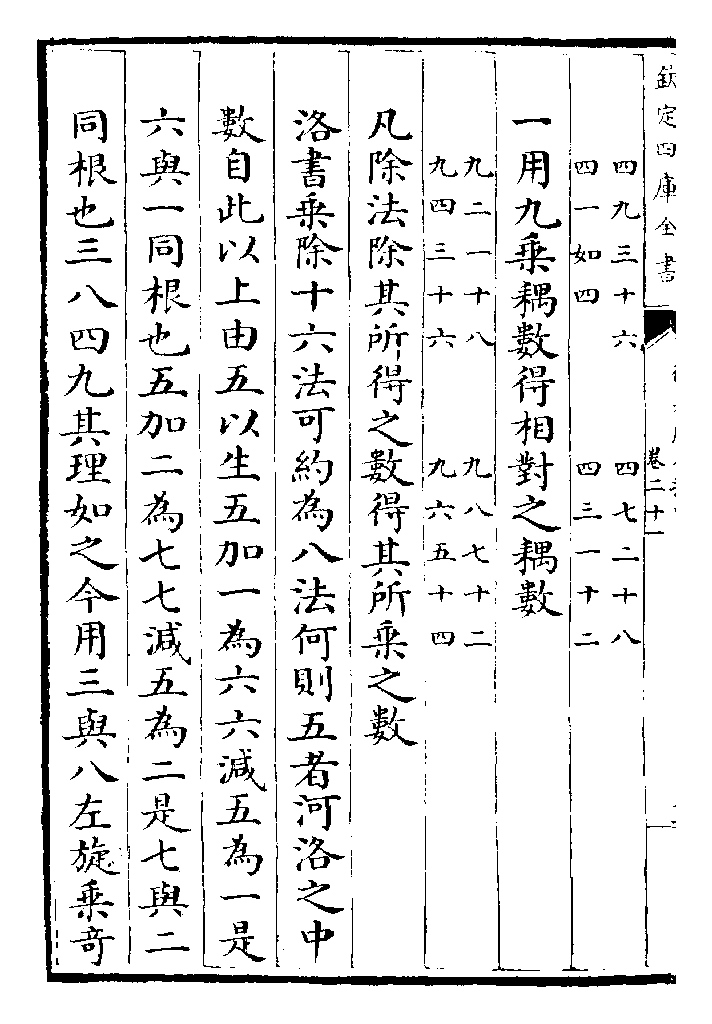 欽定四庫全書
卷二十一
四九三十六　四七二十八
四一如四　四三一十二
一用九乘耦數得相對之耦數
九二一十八　九八七十二
九四三十六　九六五十四
凡除法除其所得之數得其所乘之數
洛書乘除十六法可約為八法何則五者河洛之中
數自此以上由五以生五加一為六六減五為一是
六與一同根也五加二為七七減五為二是七與二
同根也三八四九其理如之今用三與八左旋乘竒